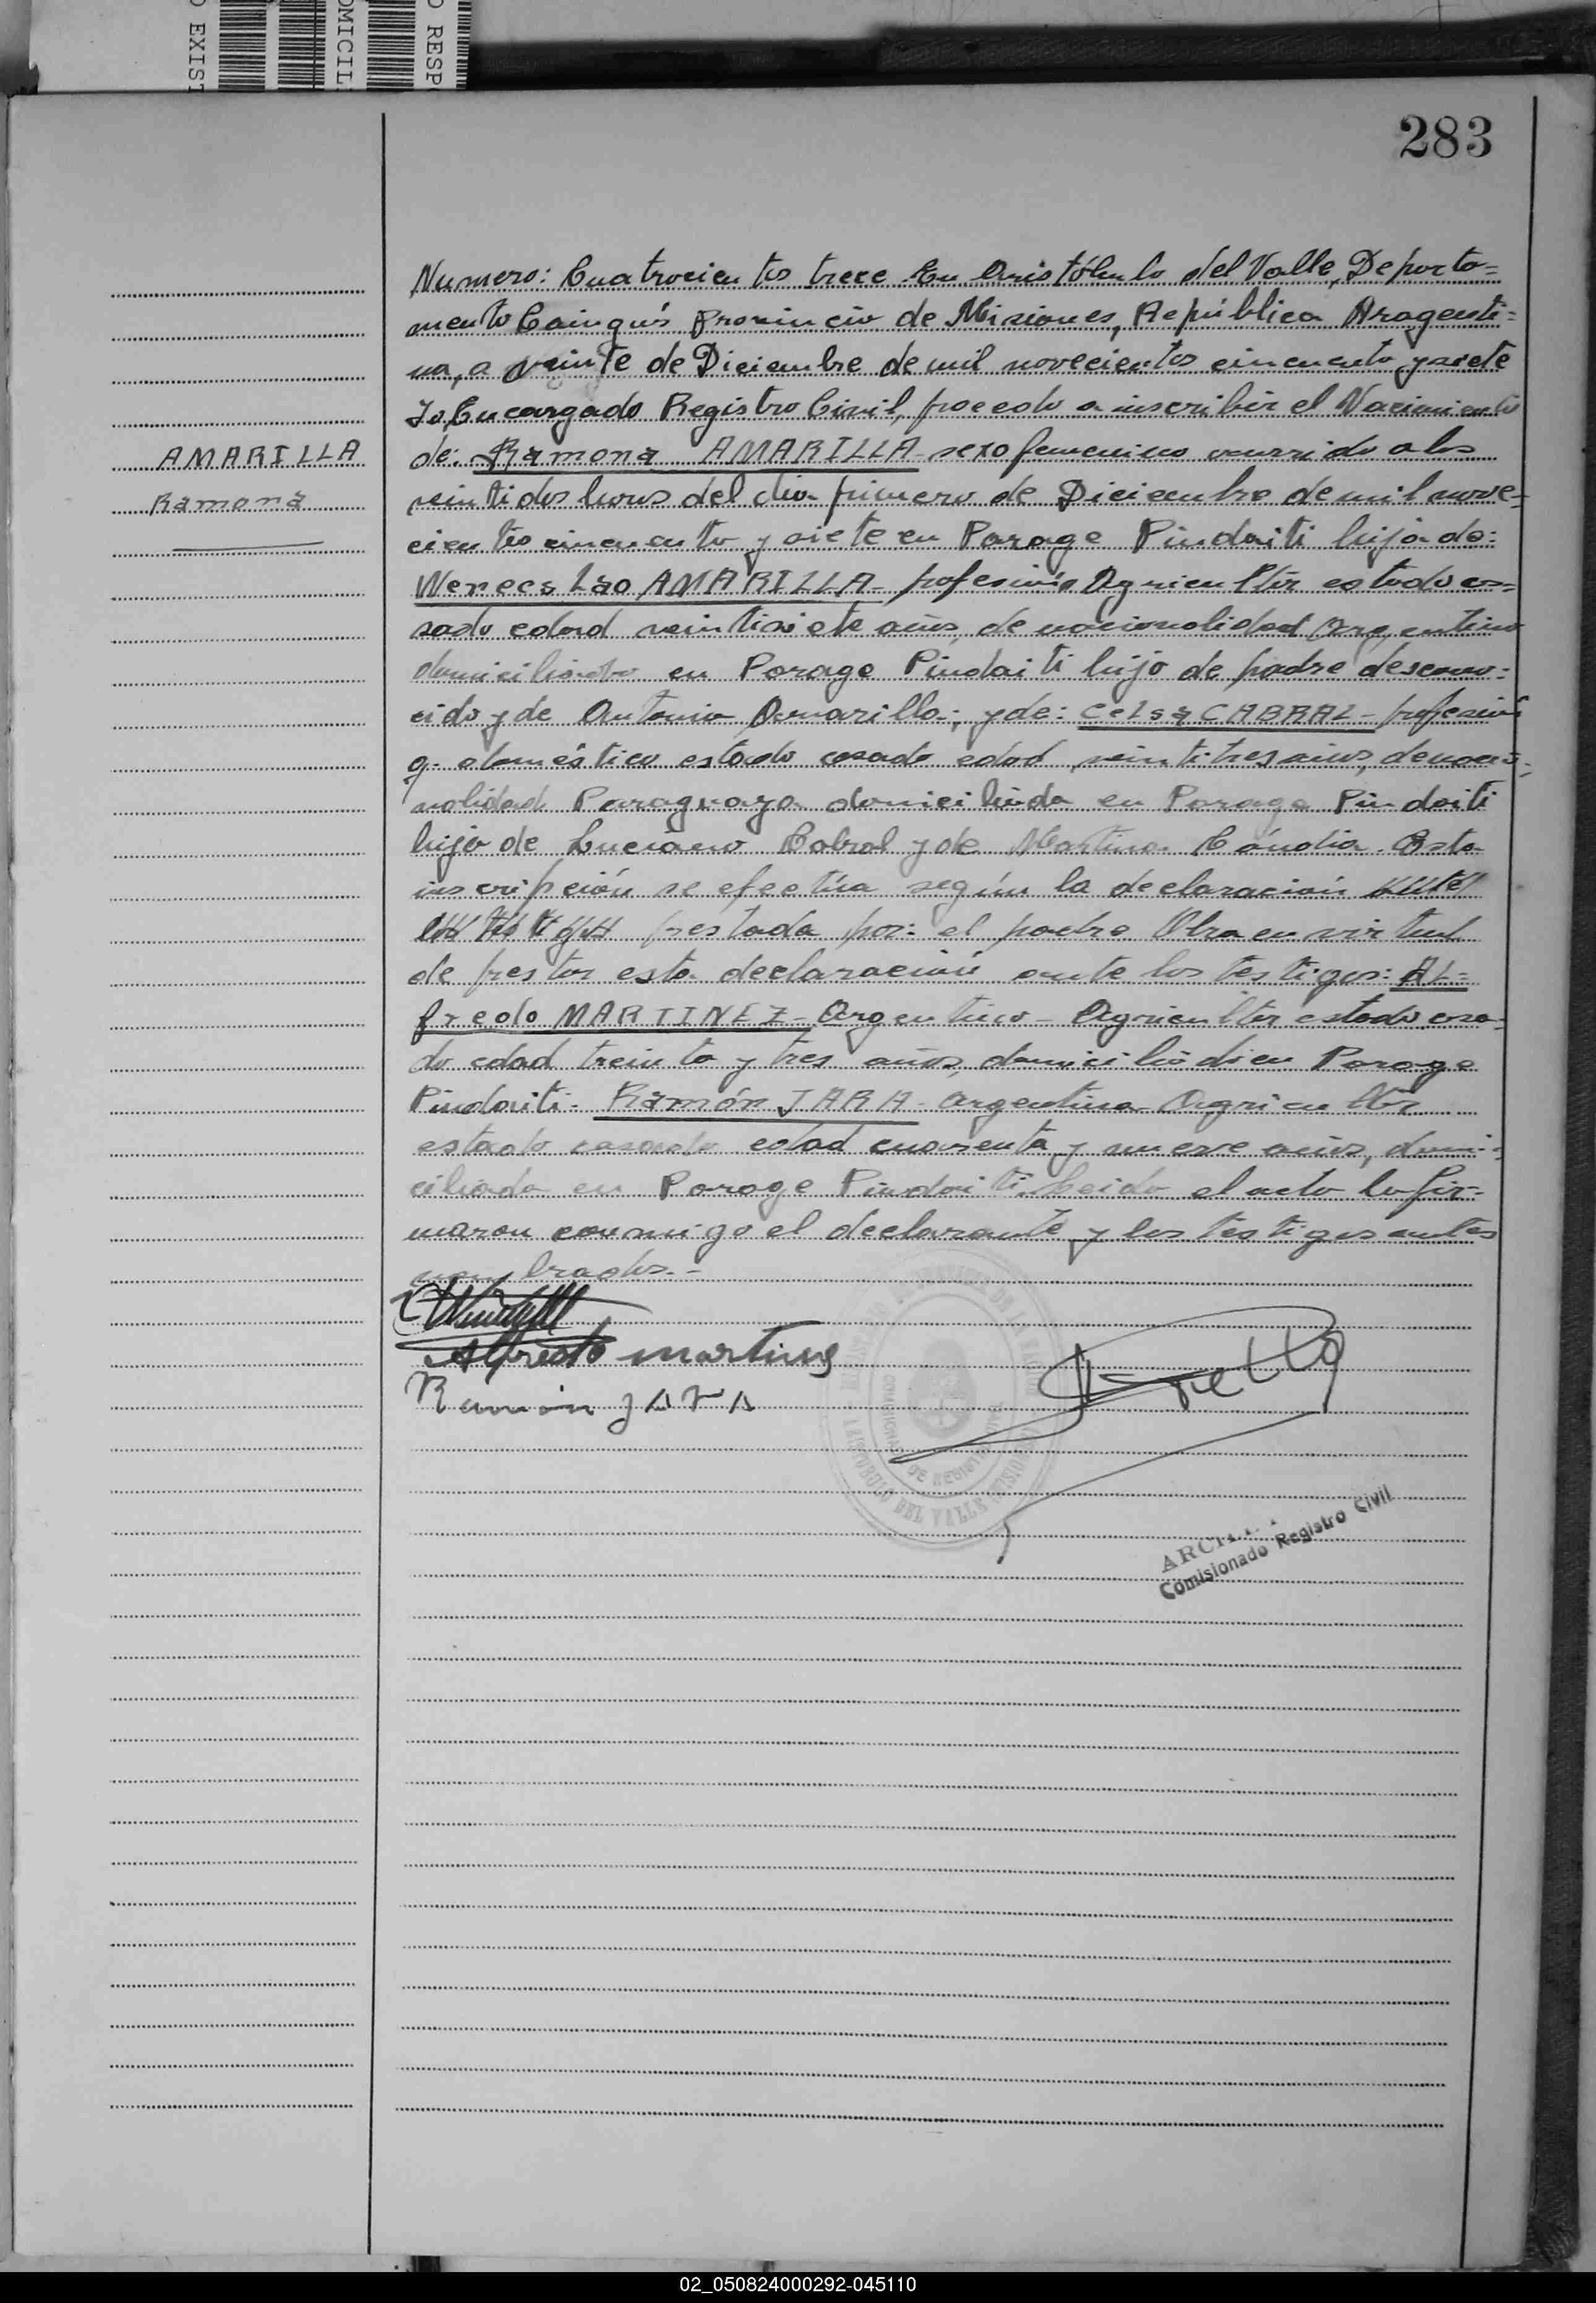 O EXIST
OMICIL
O RESP
283
Numero: Cuatrocientos trece En Aristóbulo del Valle, Departa=
mento Cainguás Provincia de Misiones, República Aragenti=
na, a veinte de Diciembre de mil novecientos cincuenta y siete
Yo, Encargado Registro Civil, procedo a inscribir el Nacimiento
AMARILLA
de: Ramona AMARILLA - sexo femenino ocurrido a las
Ramona
veintidos horas del día primero de Diciembre de mil nove-
cientos cincuenta y siete en Parage Pindaiti hija de:
Wenecslao AMARILLA - profesión Agricultor estado ca=
sado edad veintisiete años, de nacionalidad Argentino
domiciliado en Parage Pindaiti hijo de padre descono=
cido y de Antonia Amarilla.; y de: Celsa CABRAL - profesión
q. doméstico estado casado edad veintitres años, de nacio=
nalidad Paraguaya domiciliada en Parage Pindaiti
hija de Luciano Cabral y de Martina Cándia. Esta
inscripción se efectúa según la declaración ante
los testigos prestada por: el padre Obra en virtud
de prestar esta declaración ante los testigos: AL=
fredo MARTINEZ - Argentino - Agricultor estado casa=
do edad treinta y tres años, domiciliado en Parage
Pindaiti - Ramón JARA - Argentino Agricultor
estado casado edad cuarenta y nueve años, domi=
ciliado en Parage Pindaiti. Leida el acta la fir=
maron conmigo el declarante y los testigos antes
nombrados.-
Alfredo martines
Ramón JARA
ARISTOBULO DEL VALLE
Comisionado Registro Civil
02_050824000292-045110